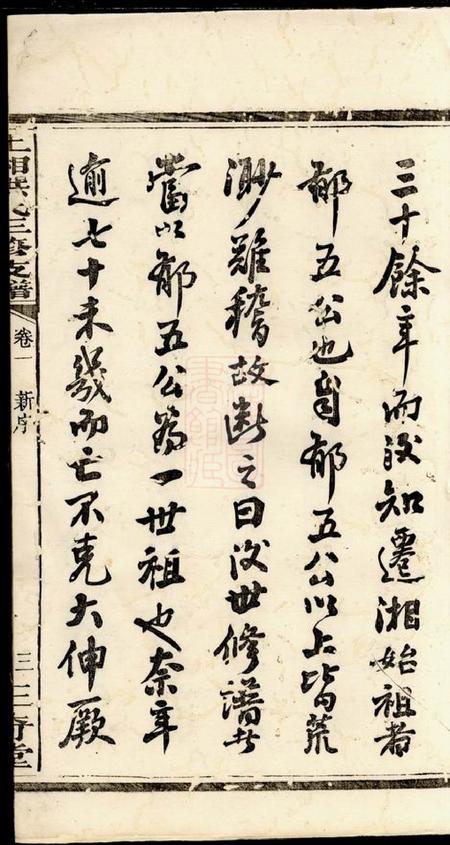 三十餘年而後知遷湘始祖者
郁五公也自郁五公以上皆荒
渺難稽故斷之曰後世修譜者
當以郁五公為一世祖也奈年
逾七十未幾而亡不克大伸厥
上湘洪氏三修支譜
卷一 新序
三